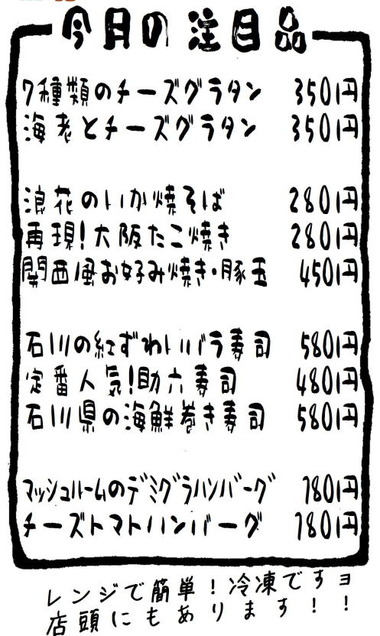 今月の注目品
7種類のチーズグラタン 350円
海老とチーズグラタン 350円
浪花のいか焼そば 280円
再現!大阪たこ焼き 280円
関西風お好み焼き・豚玉 450円
石川の紅ずわいバラ寿司 580円
定番人気!助六寿司 480円
石川県の海鮮巻き寿司 580円
マッシュルームのデミグラハンバーグ 780円
チーズトマトハンバーグ 780円
レンジで簡単!冷凍ですヨ
店頭にもあります!!